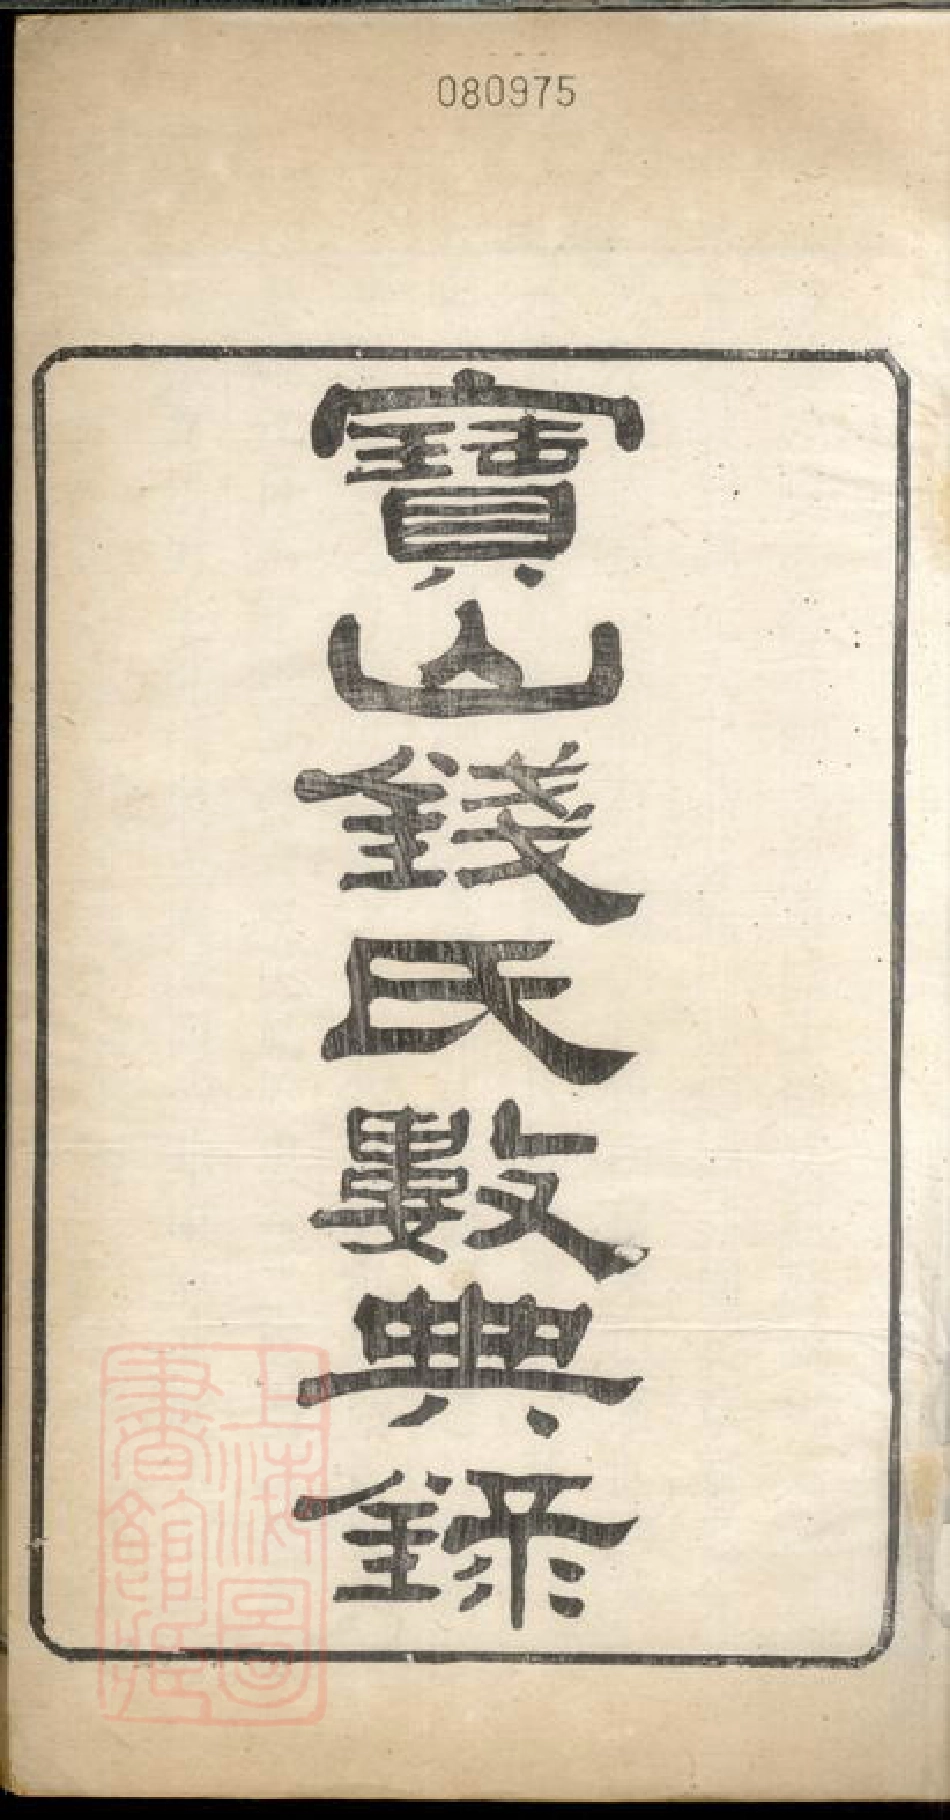 080975
寶山錢氏數典錄
上海圖
書館藏